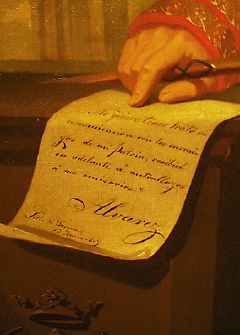 No quiero tener trato ni
comunicacion con los enemi
gos de mi patria, recibiré
en adelante á metrallazos
á sus emisarios
Alvarez